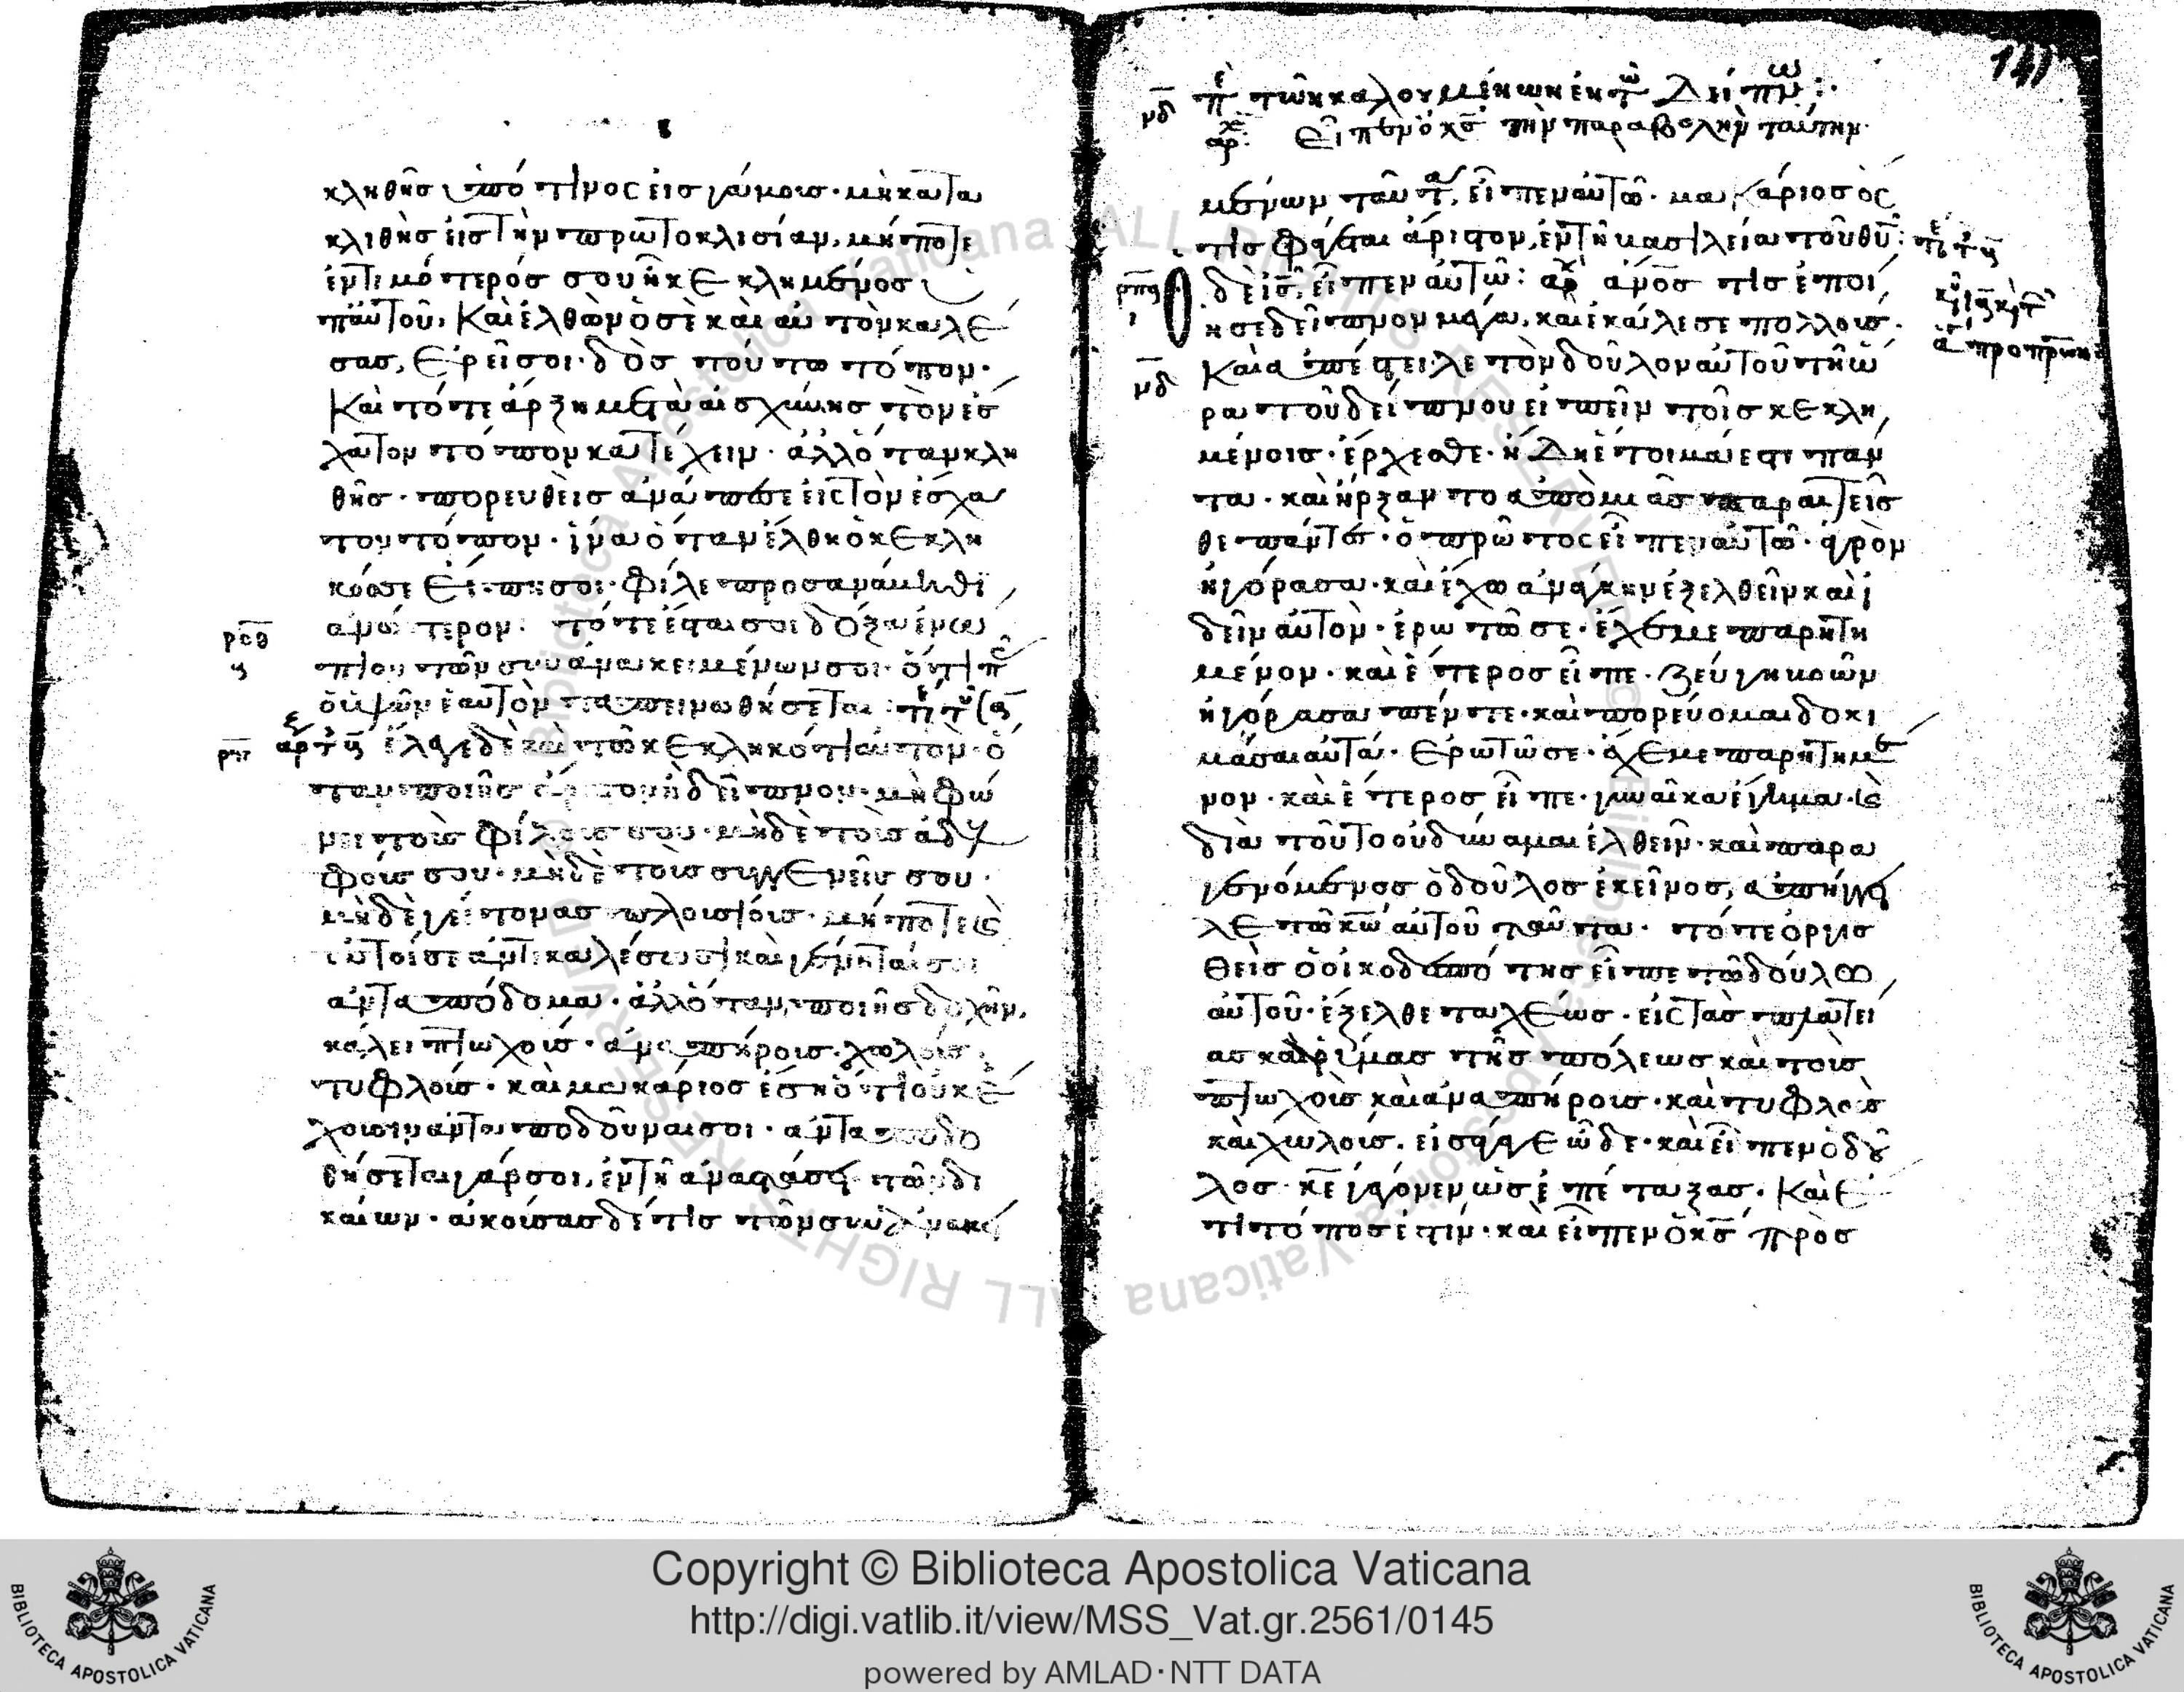 κληθῆσ ὑπό τινοσ εἰσ γάμουσ· μὴ κατα
κλιθῆσ εἰσ τὴν πρωτοκλισίαν, μήποτε
ἐντιμότερόσ σου ἦ κεκλημένοσ ὑ
π' αὐτοῦ, καὶ ἐλθὼν ὁ σὲ καὶ αὐτὸν καλέ
σασ, ἐρεῖ σοι· δὸσ τούτω τόπον·
Καὶ τότε ἄρξη μετὰ αἰσχύνησ τὸν ἔσ
χατον τόπον κατέχειν· ἀλλ' ὅταν κλη
θῆσ· πορευθεὶσ ἀνάπεσε εἰσ τὸν ἔσχα
τον τόπον· ἵνα ὅταν ἔλθη ὁ κεκλη
κώσ σε εἴπη σοι· φίλε προσανάβηθι
ἀνώτερον· τότε ἔσται σοι δόξα ἐνώ
ροθ
πιον τῶν συνανακειμένων σοι· ὅτι π
ὁ ὑψῶν ἑαυτὸν ταπεινωθήσεται
ρπ
ἔλεγε δὲ καὶ τῶ κεκληκότι αὐτὸν· ὅ
ταν ποιῆσ ἄριστον ἢ δεῖπνον· μὴ φώ
νει τοὺσ φίλουσ σου· μηδὲ τοὺσ ἀδελ
φούσ σου· μηδὲ τοὺσ συγγενεῖσ σου·
μηδὲ γείτονασ πλουσίουσ· μήποτε καὶ
αὐτοί σε ἀντικαλέσωσι καὶ γένηταί σοι
ἀνταπόδομα· ἀλλ' ὅταν ποιῆσ δοχὴν,
κάλει πτωχούσ· ἀναπήρουσ· χωλούσ·
τυφλούσ· καὶ μακάριοσ ἔση ὅτι οὐκ ἔ
χουσιν ἀνταποδοῦναι σοι· ἀνταποδο
θήσεται γάρ σοι, ἐν τῆ ἀναστάσει τῶν δι
καίων· ἀκούσασ δέ τισ τῶν συνανακει
141
νδ
π τῶν καλουμένων ἐν τῶ Δείπνω:·
Εἶπεν ὁ κσ τὴν παραβολὴν ταύτην·
μένων ταῦτα, εἶπεν αὐτῶ· μακάριοσ ὃσ
τισ φάγεται ἄριστον, ἐν τῆ βασιλεία τοῦ θυ:
ρπα
δὲ ισ, εἶπεν αὐτῶ: ανοσ τισ ἐποί
ησε δεῖπνον μέγα, καὶ ἐκάλεσε πολλούσ·
νδ
Καὶ ἀπέστειλε τὸν δοῦλον αὐτοῦ τῆ ὥ
ρα τοῦ δείπνου εἰπεῖν τοῖσ κεκλη
μένοισ· ἔρχεσθε· ἤδη ἕτοιμά ἐστι πάν
τα· καὶ ἤρξαντο ἀπὸ μιᾶσ παραιτεῖσ
θαι πάντεσ· ὁ πρῶτοσ εἶπεν αὐτῶ· ἀγρὸν
ἠγόρασα· καὶ ἔχω ἀνάγκην ἐξελθεῖν καὶ ἰ
δεῖν αὐτὸν· ἐρωτῶ σε· ἔχε με παρητη
μένον· καὶ ἕτεροσ εἶπε· ζεύγη βοῶν
ἠγόρασα πέντε· καὶ πορεύομαι δοκι
μάσαι αὐτά· ἐρωτῶ σε· ἔχε με παρητημέ
νον· καὶ ἕτεροσ εἶπε· γυναῖκα ἔγημα· καὶ
διὰ τοῦτο οὐ δύναμαι ἐλθεῖν· καὶ παρα
γενόμενοσ ὁ δοῦλοσ ἐκεῖνοσ, ἀπήγγει
λε τῶ κω αὐτοῦ ταῦτα· τότε ὀργισ
θεὶσ ὁ οἰκοδεσπότησ εἶπε τῶ δούλω
αὐτοῦ· ἔξελθε ταχέωσ· εἰσ τὰσ πλατεί
ασ καὶ ῥύμασ τῆσ πόλεωσ καὶ τοὺσ
πτωχοὺσ καὶ ἀναπήρουσ· καὶ τυφλοὺσ
καὶ χωλοὺσ· εἰσάγαγε ὧδε· καὶ εἶπεν ὁ δοῦ
λοσ· κε γέγονεν ὡσ ἐπέταξασ· Καὶ ἔ
τι τόποσ ἐστίν· καὶ εἶπεν ὁ κσ πρὸσ
Copyright © Biblioteca Apostolica Vaticana
http://digi.vatlib.it/view/MSS_Vat.gr.2561/0145
powered by AMLAD·NTT DATA
BIBLIOTECA APOSTOLICA VATICANA
BIBLIOTECA APOSTOLICA VATICANA